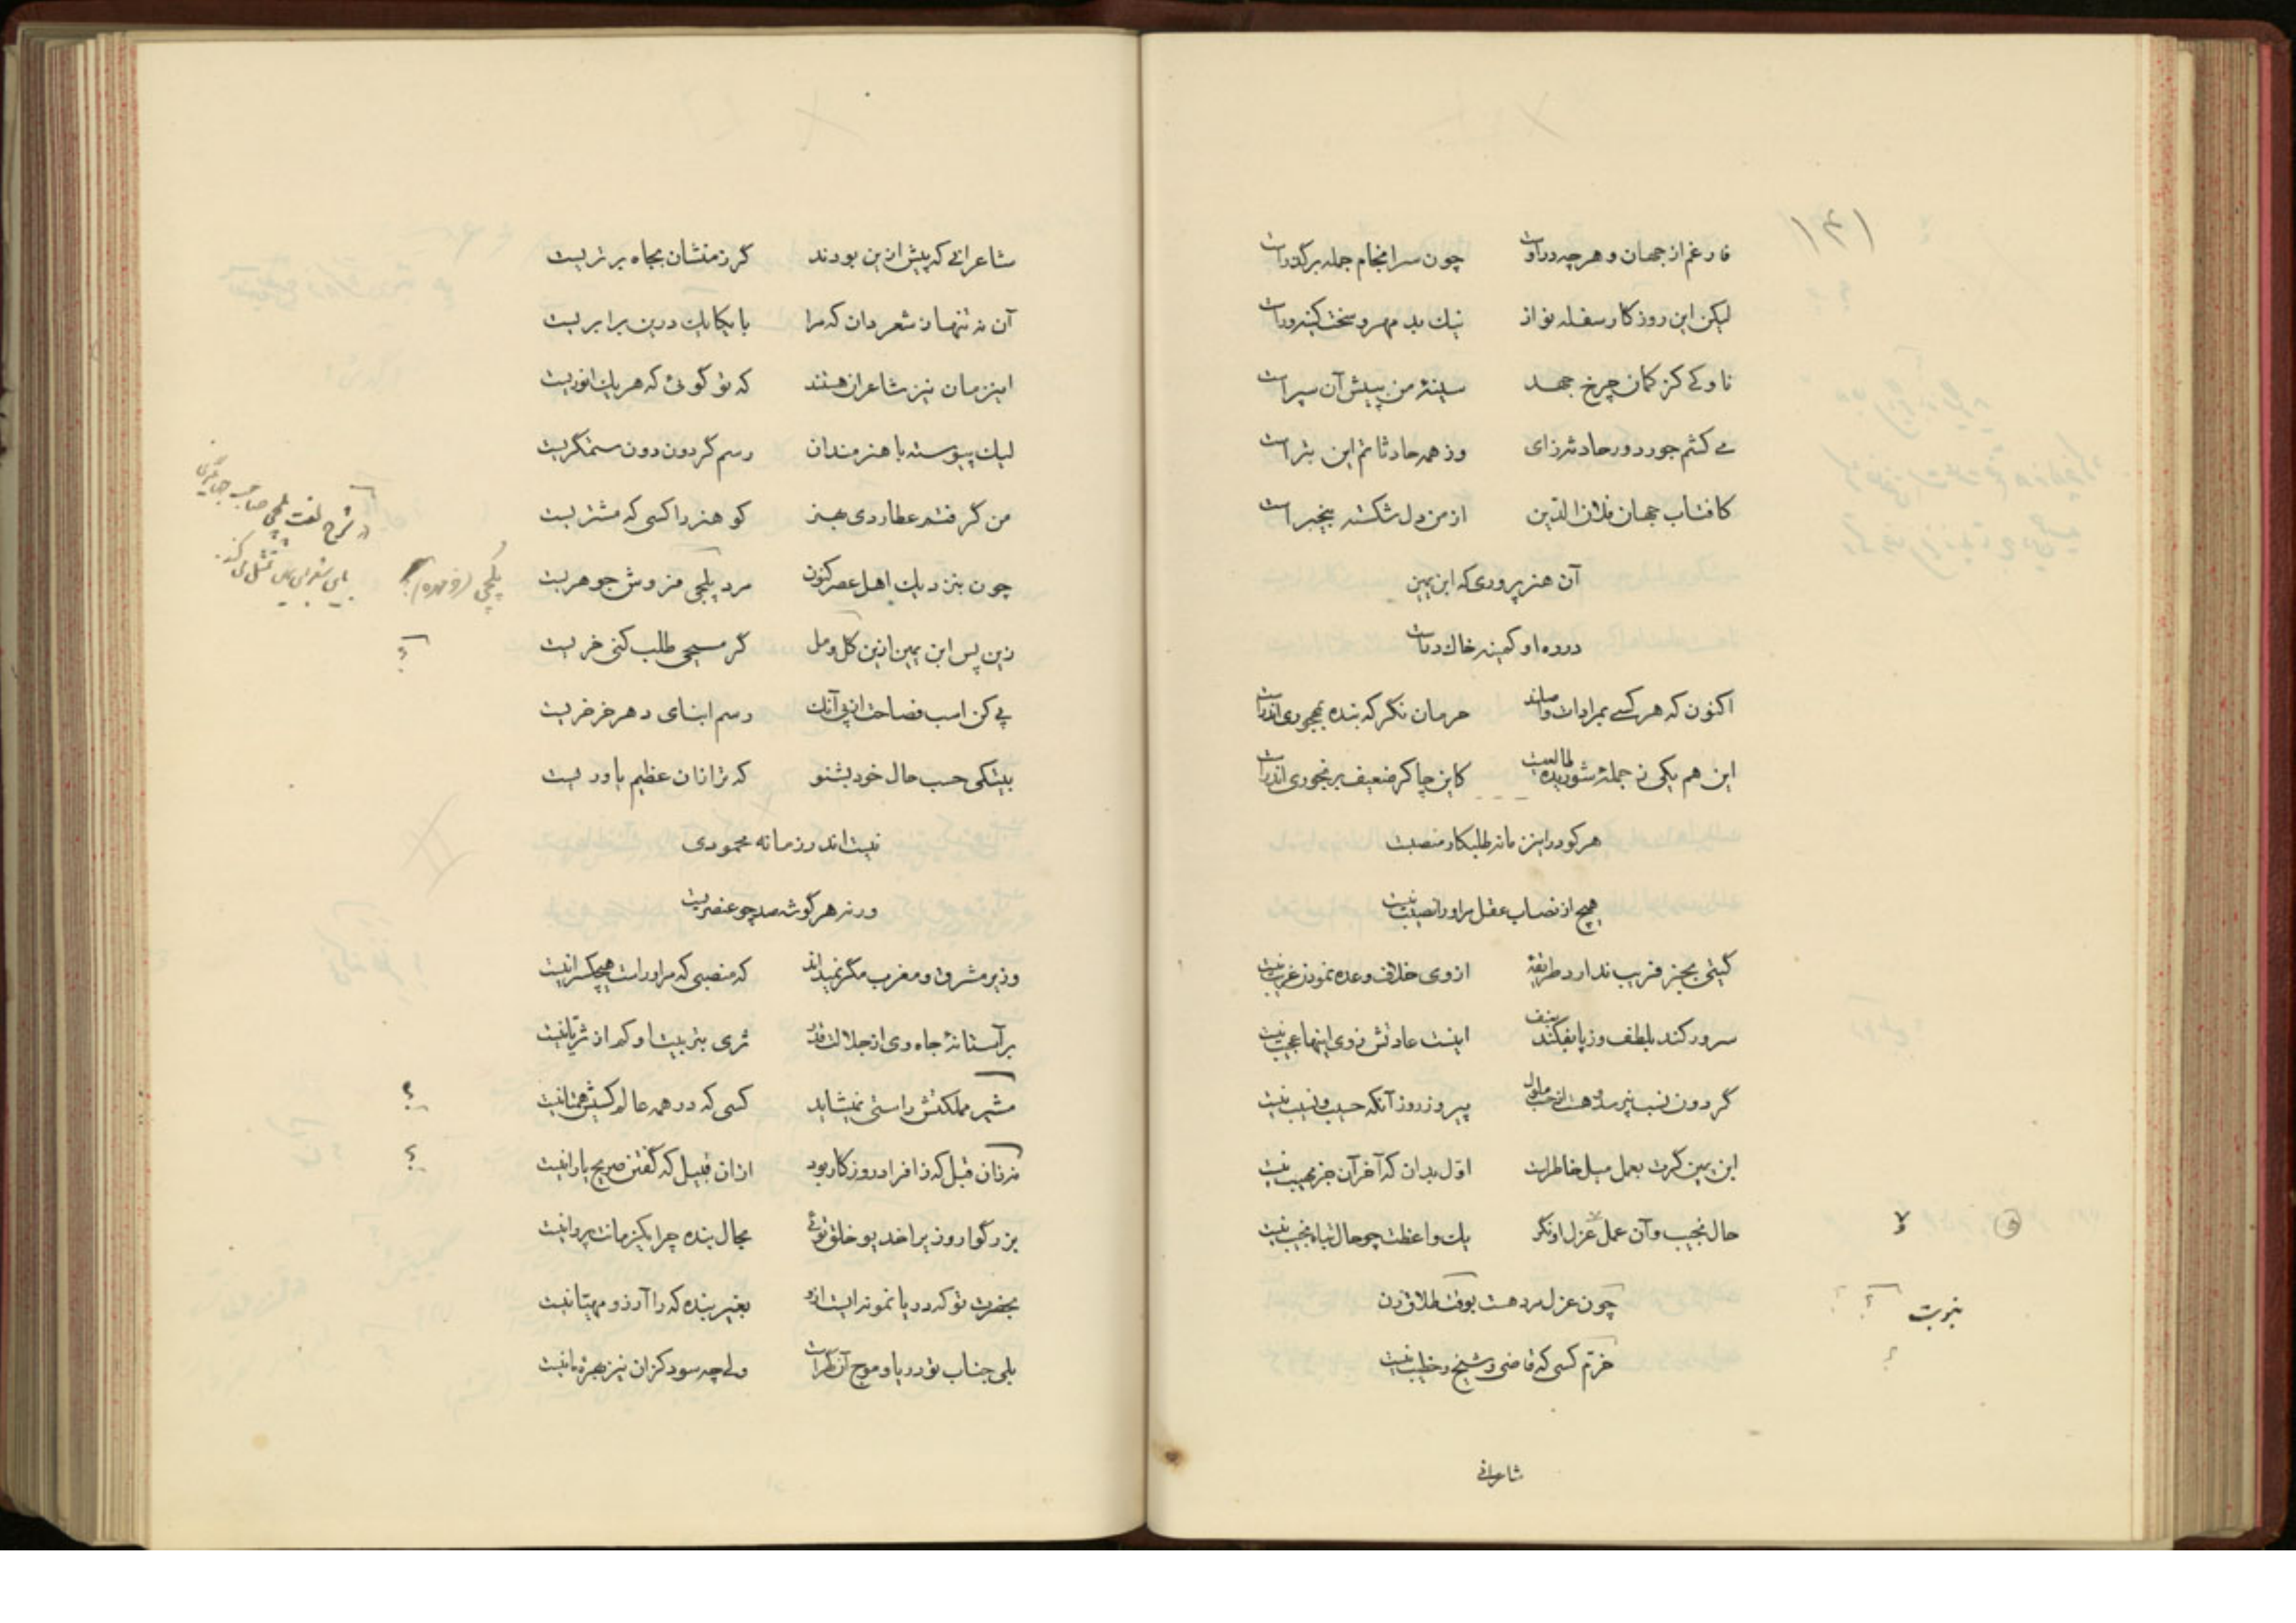 (۴۱)
فارغم از جهان و هر چه دروست چون سرانجام جمله برگذرست
لیکن این روزگار سفله نواز نیک بد مهر و سخت کینه ورست
ناوکی کز کمان چرخ جهد سینهٔ من پیش آن سپر است
می کشم جور دور حادثه زای وز همه حادثاتم این بتر است
کافتاب جهان فلان الدین از من دل شکسته بیخبر است
آن هنرپروری که ابن یمین
در ره او کمینه خاک درست
اکنون که هر کسی بمرادات واصلند حرمان نگر که بنده بمهجوری اندرست
این هم یکی ز جملهٔ شوریده طالعیست کاین چاکر ضعیف برنجوری اندرست
هر کو درین زمانه طلبکار منصبست
هیچ از نصاب عقل مر او را نصیب نیست
گیتی بجز فریب ندارد طریقهٔ از وی خلاف وعده نمودن غریب نیست
سرور کند بلطف و ز پا بفکند بعنف اینست عادتش ز وی اینها عجیب نیست
گردون نسب نپرسد و هست از حسب ملول پیروز روز آنکه حسیب و نسیب نیست
ابن یمین گرت بعمل میل خاطرست اول بدان که آخر آن جز مهیب نیست
حال نجیب و آن عمل عزل او نگر یک واعظت چو حال تباه نجیب نیست
چون عزل مرد هست بوقت طلاق زن
بنوبت ؟
خرم کسی که قاضی و شیخ و خطیب نیست
؟
شاعرانی
شاعرانی که پیش ازین بودند گر زمنشان بجاه برتریست
آن نه تنها ز شعر دان که مرا با یکایک درین برابریست
این زمان نیز شاعران هستند که تو گوئی که هر یک انوریست
لیک پیوسته با هنرمندان رسم گردون دون ستمگریست
من گرفتم عطاردی بهنر کو هنر را کسی که مشتریست
چون بنزدیک اهل عصر کنون مرد پلچی فروش جوهریست
پلچی (خرمهره)؟
در شرح لغت پلچی صاحب جهانگیری
باین شعر ابن یمین تمثل می کند.
زین پس ابن یمین ازین گل و مل گر مسیحی طلب کنی خریست
؟
پی کن اسب فصاحت از پی آنک رسم ابنای دهر خر خریست
بیتکی حسب حال خود بشنو که ترا زان عظیم یاوریست
نیست اندر زمانه محمودی
ورنه هر گوشه صد چو عنصریست
وزیر مشرق و مغرب مگر نمیداند که منصبی که مر او راست هیچکس را نیست
بر آستانهٔ جاه وی از جلالت قدر ثری بتربیت او کم از ثریا نیست
مشیر مملکتش راستی نمیشاید کسی که در همه عالم کسیش همتا نیست
؟
نه زان قبل که ز افراد روزگار بود از آن قبیل که گفتن صریح یارا نیست
؟
بزرگوار وزیرا خدیو خلق توئی مجال بنده چرا یکزمانت پروا نیست
بحضرت تو که دریا نمونه ایست ازو بغیر بنده که را آرزو مهیا نیست
بلی جناب تو دریا و موج آن گهرست ولی چه سود کزان نیز بهرهٔ ما نیست